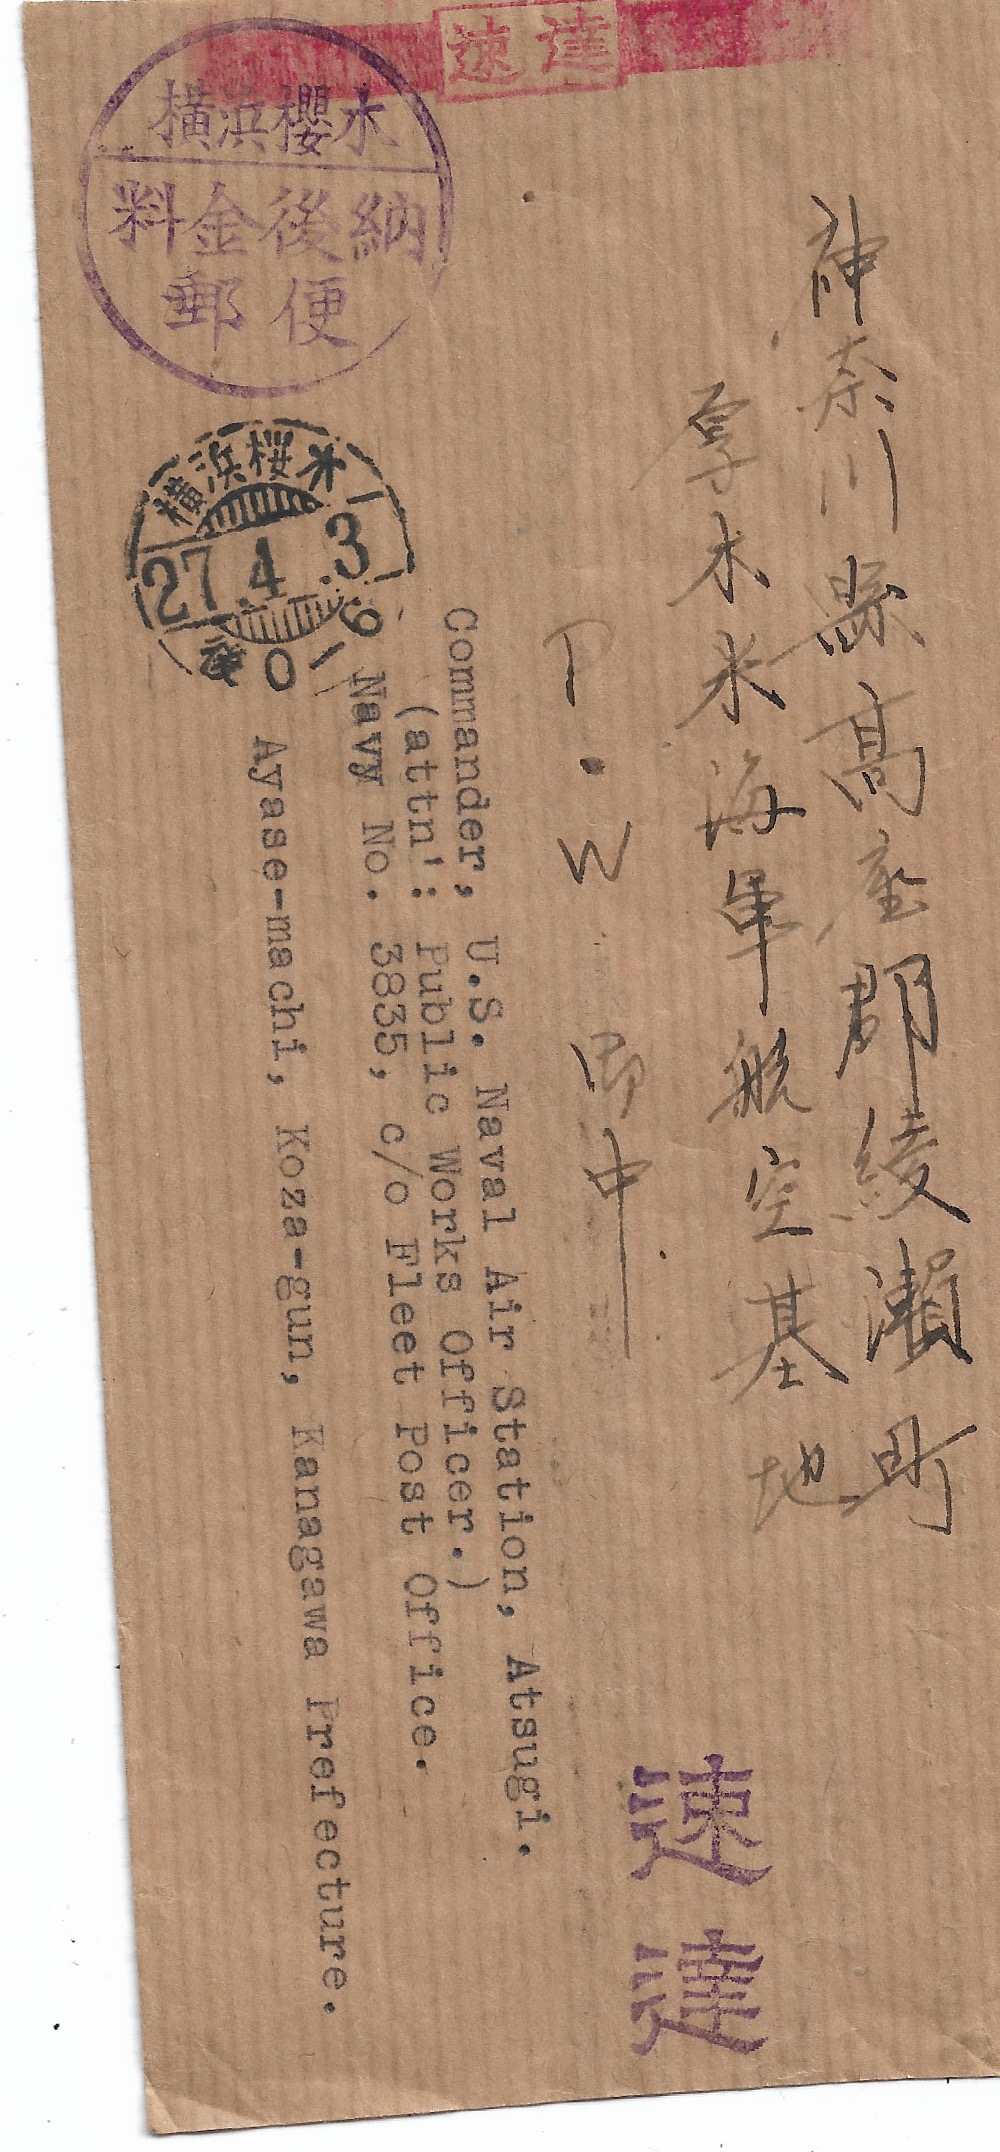 速達
横浜櫻木
料金後納
郵便
横浜桜木
27.4.3
後0-6
神奈川縣高座郡綾瀬町
厚木米海軍航空基地
P.W 御中
Commander, U.S. Naval Air Station, Atsugi.
(attn': Public Works Officer.)
Navy No. 3835, c/o Fleet Post Office.
Ayase-machi, Koza-gun, Kanagawa Prefecture.
速達